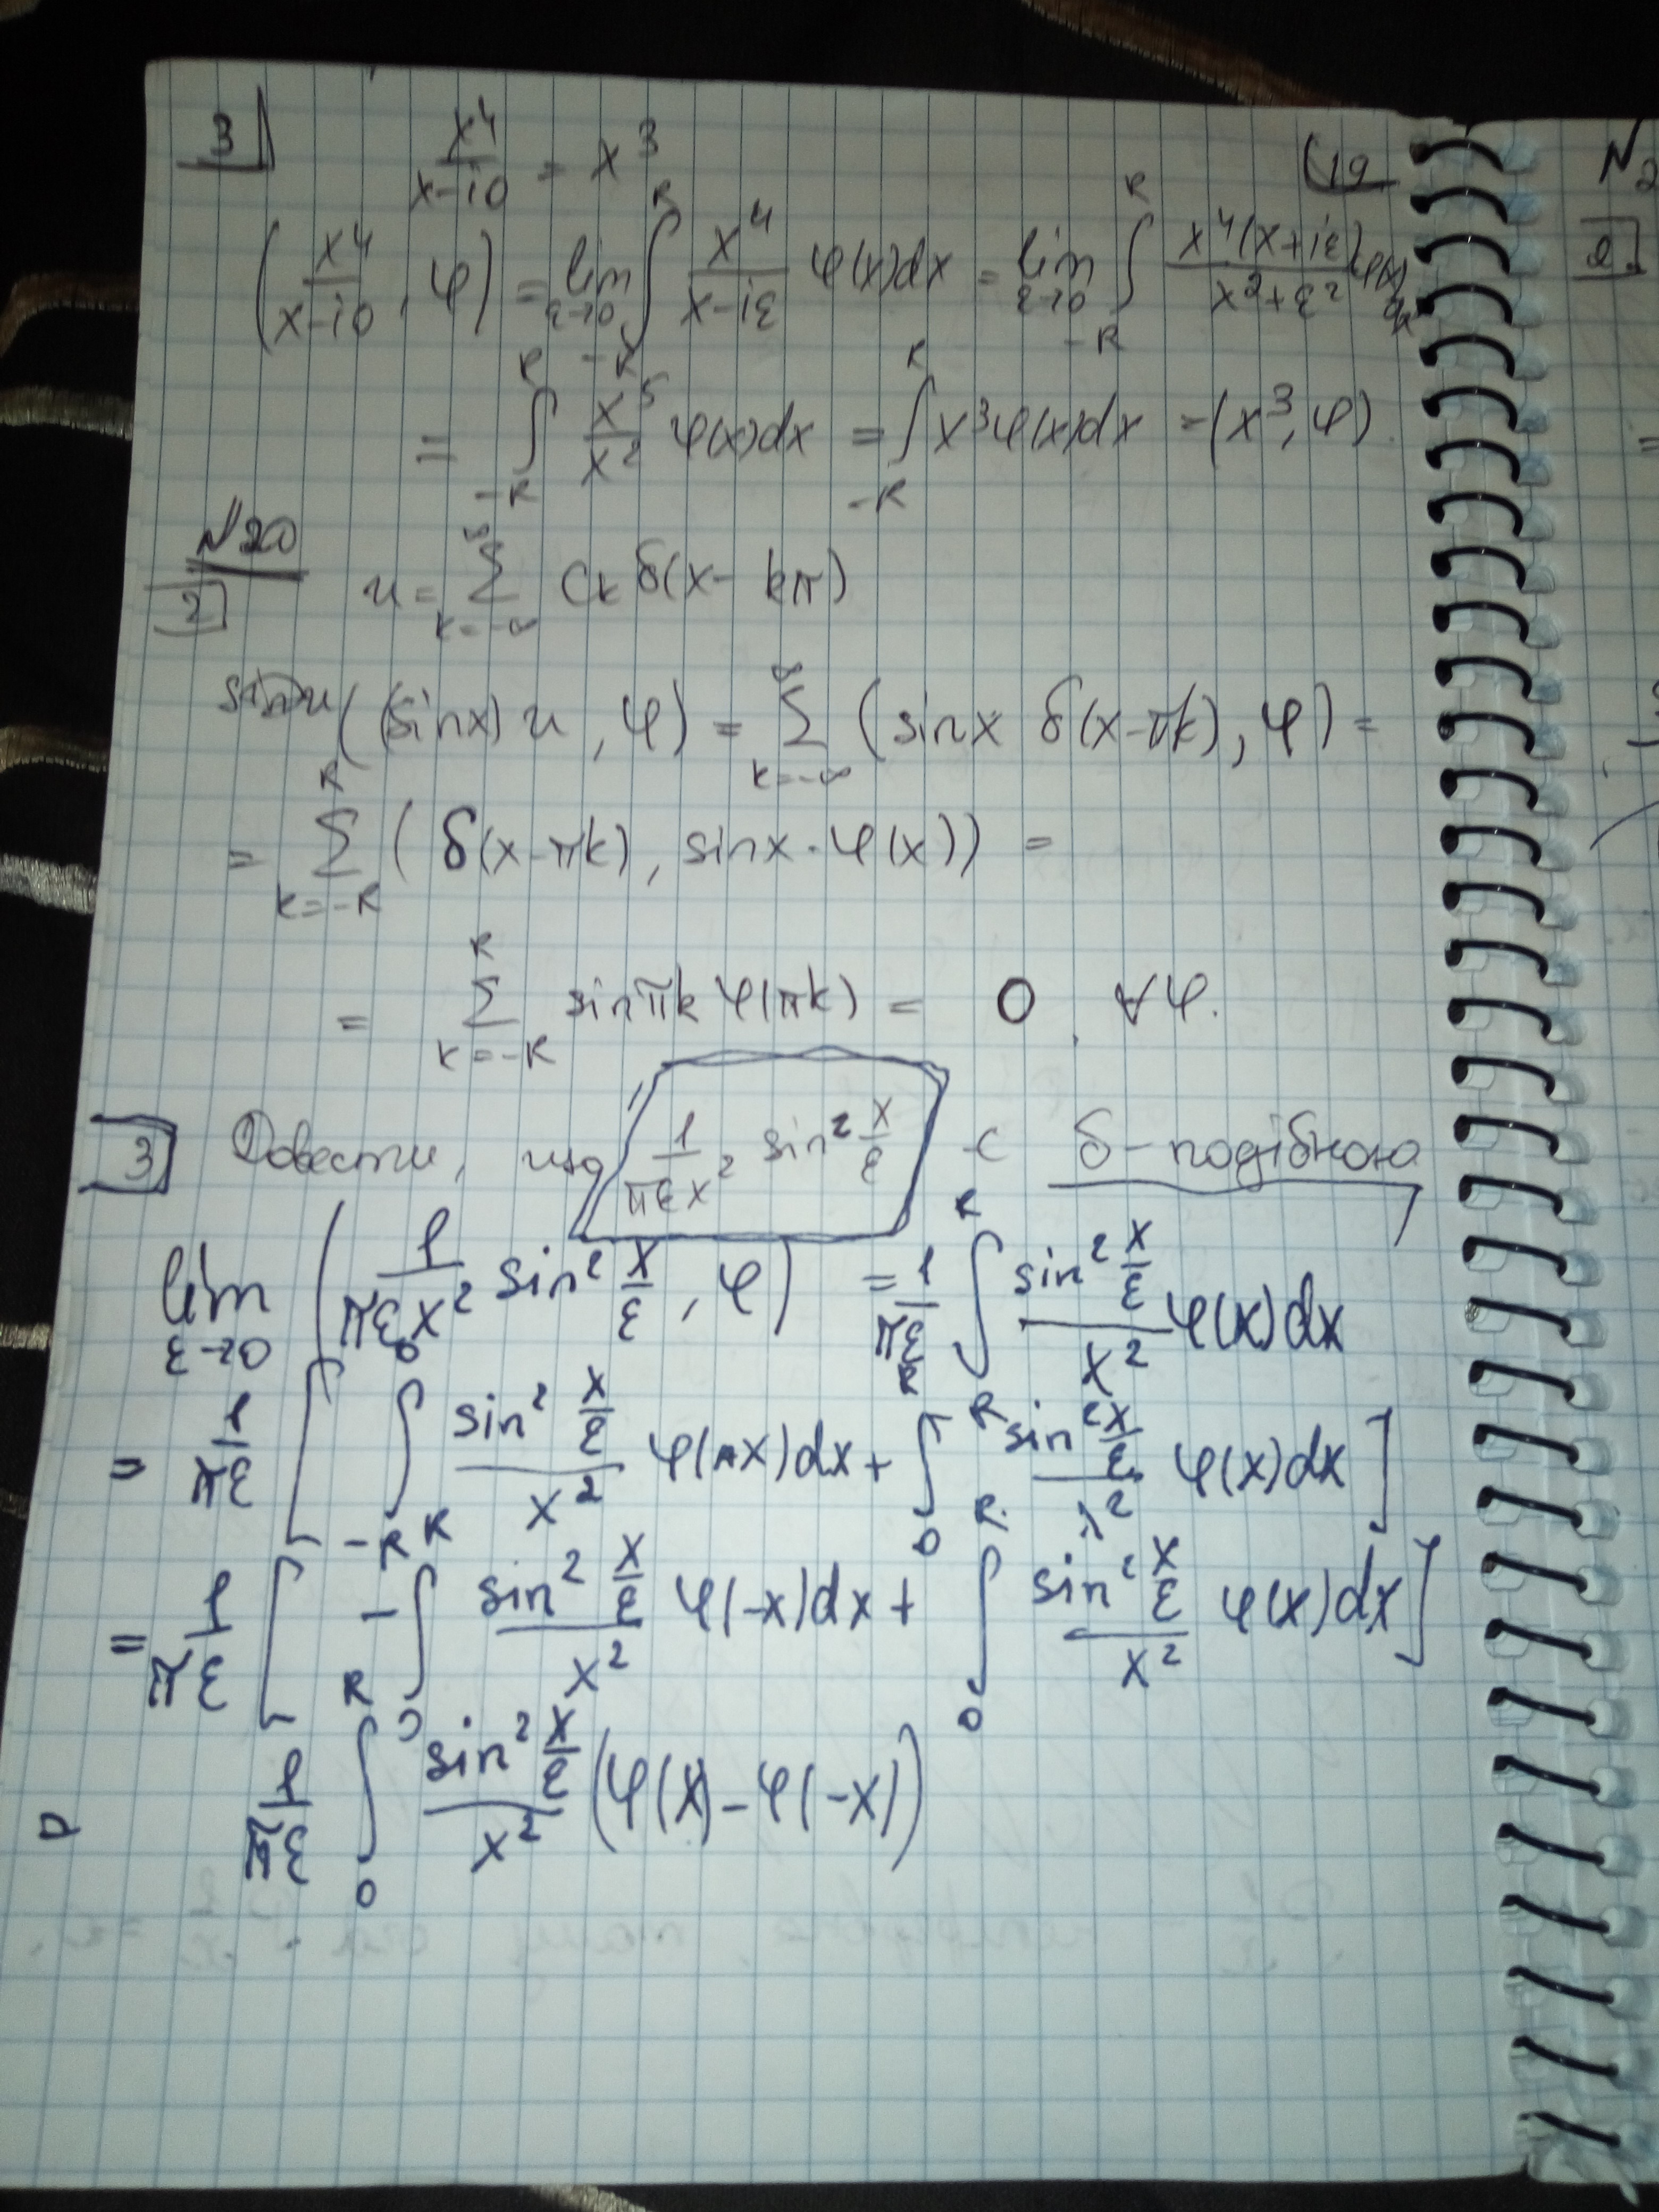 3 x⁴/(x-i0) = x³ (19
(x⁴/(x-i0), φ) = lim_{ε→0} ∫_{-R}^{R} x⁴/(x-iε) φ(x)dx = lim_{ε→0} ∫_{-R}^{R} x⁴(x+iε)/(x²+ε²) φ(x)dx
= ∫_{-R}^{R} x⁵/x² φ(x)dx = ∫_{-R}^{R} x³φ(x)dx = (x³, φ).
№20
2 u = ∑_{k=-∞}^{∞} Ck δ(x- kπ)
((sinx) u, φ) = ∑_{k=-∞}^{∞} (sinx δ(x-πk), φ) =
= ∑_{k=-R}^{R} (δ(x-πk), sinx·φ(x)) =
= ∑_{k=-R}^{R} sinπk φ(πk) = 0, ∀φ.
3 Довести, що 1/(πεx²) sin² x/ε є δ-подібною
lim_{ε→0} (1/(πεx²) sin² x/ε, φ) = 1/(πε) ∫_{-R}^{R} (sin² x/ε)/x² φ(x)dx
= 1/(πε) [∫_{-R}^{0} (sin² x/ε)/x² φ(x)dx + ∫_{0}^{R} (sin² x/ε)/x² φ(x)dx]
= 1/(πε) [-∫_{0}^{R} (sin² x/ε)/x² φ(-x)dx + ∫_{0}^{R} (sin² x/ε)/x² φ(x)dx]
1/(πε) ∫_{0}^{R} (sin² x/ε)/x² (φ(x)-φ(-x))